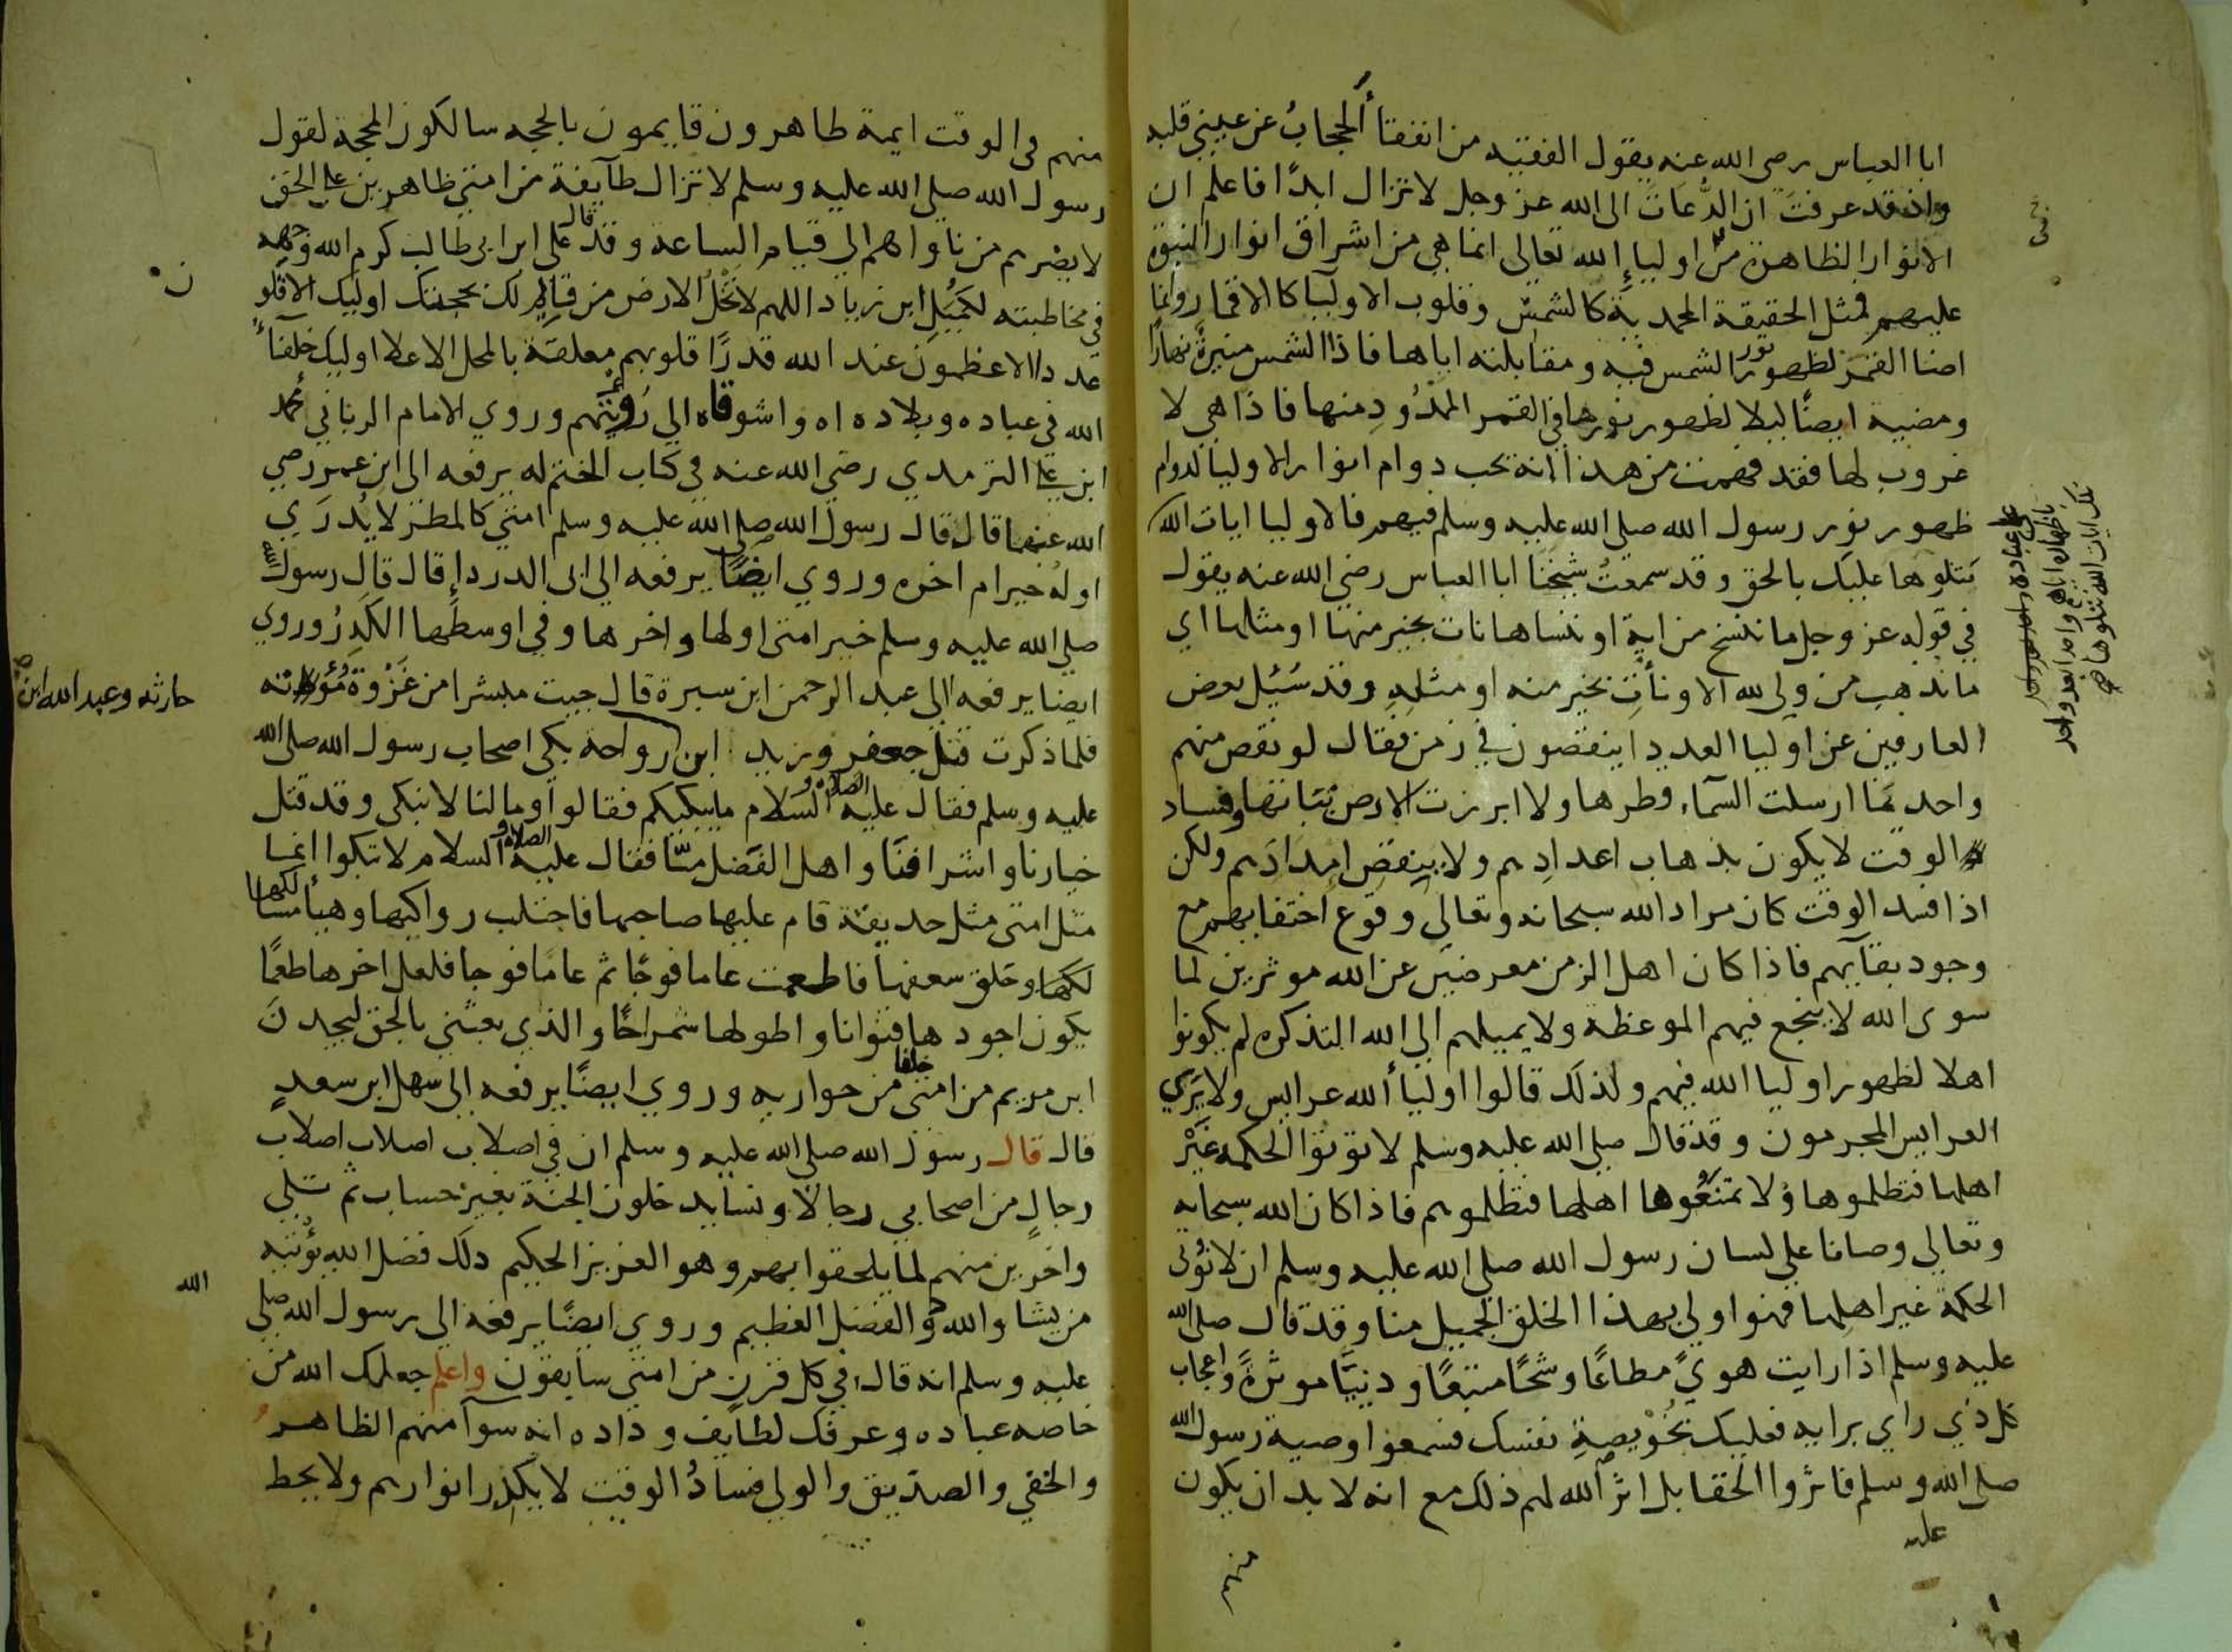 ابا العباس رضى الله عنه يقول الفقيه من انفقأ الحجابُ عن عيني قلبه
واذ قد عرفتَ ان الدُّعاتَ الى الله عز وجل لا تزال ابدًا فاعلم ان
الانوار الظاهرة من اولياء الله تعالى انما هي من اشراق انوار النبوة
عليهم فمثل الحقيقة المحمدية كالشمس وقلوب الاوليآ كالاقمار وانما
اضا القمر لظهور نور الشمس فيه ومقابلته اياها فاذا الشمس منيرةٌ نهارًا
ومضيية ايضًا ليلا لظهور نورها في القمر الممْدُودِ منها فاذا هي لا
غروب لها فقد فهمت من هذا انه يجب دوام انوار الاوليا لدوام
ظهور نور رسول الله صلى الله عليه وسلم فيهم فالاوليا ايات الله
نتلوها عليك بالحق وقد سمعتُ شيخنا ابا العباس رضي الله عنه يقول
في قوله عز وجل ما ننسخ من اية او ننساها نات بخير منها او مثلها اي
ما نذهب من ولي لله الا ونأتِ بخير منه او مثلهِ وقد سُئِل بعض
العارفين عن اوليا العدد اينقصون في زمن فقال لو نقص منهم
واحد لما ارسلت السمآء قطرها ولا ابرزت الارض نباتها وفساد
الوقت لا يكون بذهاب اعدادِهم ولا بنقص امدادَهم ولكن
اذا فسد الوقت كان مراد الله سبحانه وتعالى وقوع اختفايهم مع
وجود بقآيهم فاذا كان اهل الزمن معرضين عن الله موثرين لما
سوى الله لا ينجع فيهم الموعظة ولا يميلهم الى الله التذكره لم يكونوا
اهلا لظهور اوليا الله فيهم ولذلك قالوا اوليأ الله عرايس ولا يَري
العرايس المجرمون وقد قال صلى الله عليه وسلم لا توتوا الحكمه غيْر
اهلها فتظلموها ولا تمنعُوها اهلها فتظلموهم فاذا كان الله سبحانه
وتعالى وصانا على لسان رسول الله صلى الله عليه وسلم ان لا نُوتى
الحكمة غير اهلها فهو اولى بهذا الخلق الجميل منا وقد قال صلى الله
عليه وسلم اذا رايت هويً مطاعًا وشحًا متبعًا ودنيًا موثرةً واعجاب
كل ذي راي برايه فعليك بخُوْيصةِ نفسك فسمعوا وصية رسول الله
صلى الله وسلم فاثروا الخفا بل اثر الله لهم ذلك مع انه لا بد ان يكون
عليه
منهم
باظهاره اياها واحدا بعد واحد
تلك ايات الله نتلوها صح
منهم في الوقت ايمة ظاهرون قايمون بالحجه سالكون المحجة لقول
رسول الله صلى الله عليه وسلم لا تزال طآيفة من امتي ظاهرين على الحق
لا يضرهم من ناواهم الى قيام الساعة وقد قال على ابن ابي طالب كرم الله وجهه
في مخاطبته لكُمَيْل ابن زياد اللهم لا تخْل الارض من قايم لك بحجتك اوليك الاقلو
عددا الاعظمون عند الله قدرًا قلوبهم معلقة بالمحل الاعلا اوليك خلفآء
الله في عباده وبلاده اه واشوقاه الى رُويتهم وروي الامام الرباني محمد
ابن على الترمدي رضي الله عنه في كتاب الختم له يرفعه الى ابن عمر رضي
الله عنهما قال قال رسول الله صلى الله عليه وسلم امتي كالمطر لا يُدرَي
اولهُ خير ام اخره وروي ايضًا يرفعه الى ابى الدردا قال قال رسول الله
صلى الله عليه وسلم خير امتى اولها واخرها وفي اوسطها الكدرُ وروي
ايضا يرفعه الى عبد الرحمن ابن سمرة قال جيت مبشرا من غزْوة مُؤتة
فلما ذكرت قتل جعفر وزيد ابن رواحة بكى اصحاب رسول الله صلى الله
حارثه وعبد الله ابن صح
عليه وسلم فقال عليه الصلاة والسلام ما يبكيكم فقالوا وما لنا لا نبكى وقد قتل
خيارنا واشرافنا واهل الفضل منّا فقال عليه الصلاة والسلام لا تبكوا انما
مثل امتى مثل حديقة قام عليها صاحبها فاجتلب رواكيها وهيأ مساكنها
وحلق سعفها فاطعمت عاما فوجًا ثم عامًا فوجا فلعل اخرها طعمًا
يكون اجودها قنوانا واطولها شمراخًا والذي بعثني بالحق ليجدنَ
ابن مريم من امتى خلفا من حواريه وروي ايضًا يرفعه الى سهل ابن سعدٍ
قال قال رسول الله صلى الله عليه وسلم ان في اصلاب اصلاب اصلاب
رجالٍ من اصحابي رجالا ونسا يدخلون الجنة بغير حساب ثم تلي
واخرين منهم لما يلحقوا بهم وهو العزيز الحكيم ذلك فضل الله يُؤتيه
من يشا والله ذو الفضل العظيم وروي ايضًا يرفعه الى رسول الله صلى
الله
عليه وسلم انه قال في كل قرن من امتي سابقون واعلم جعلك الله من
خاصه عباده وعرفك لطايف وداده انه سوآ منهم الظاهر
والخفي والصدّيق والولى فسادُ الوقت لا يكدر انوارهم ولا يحط